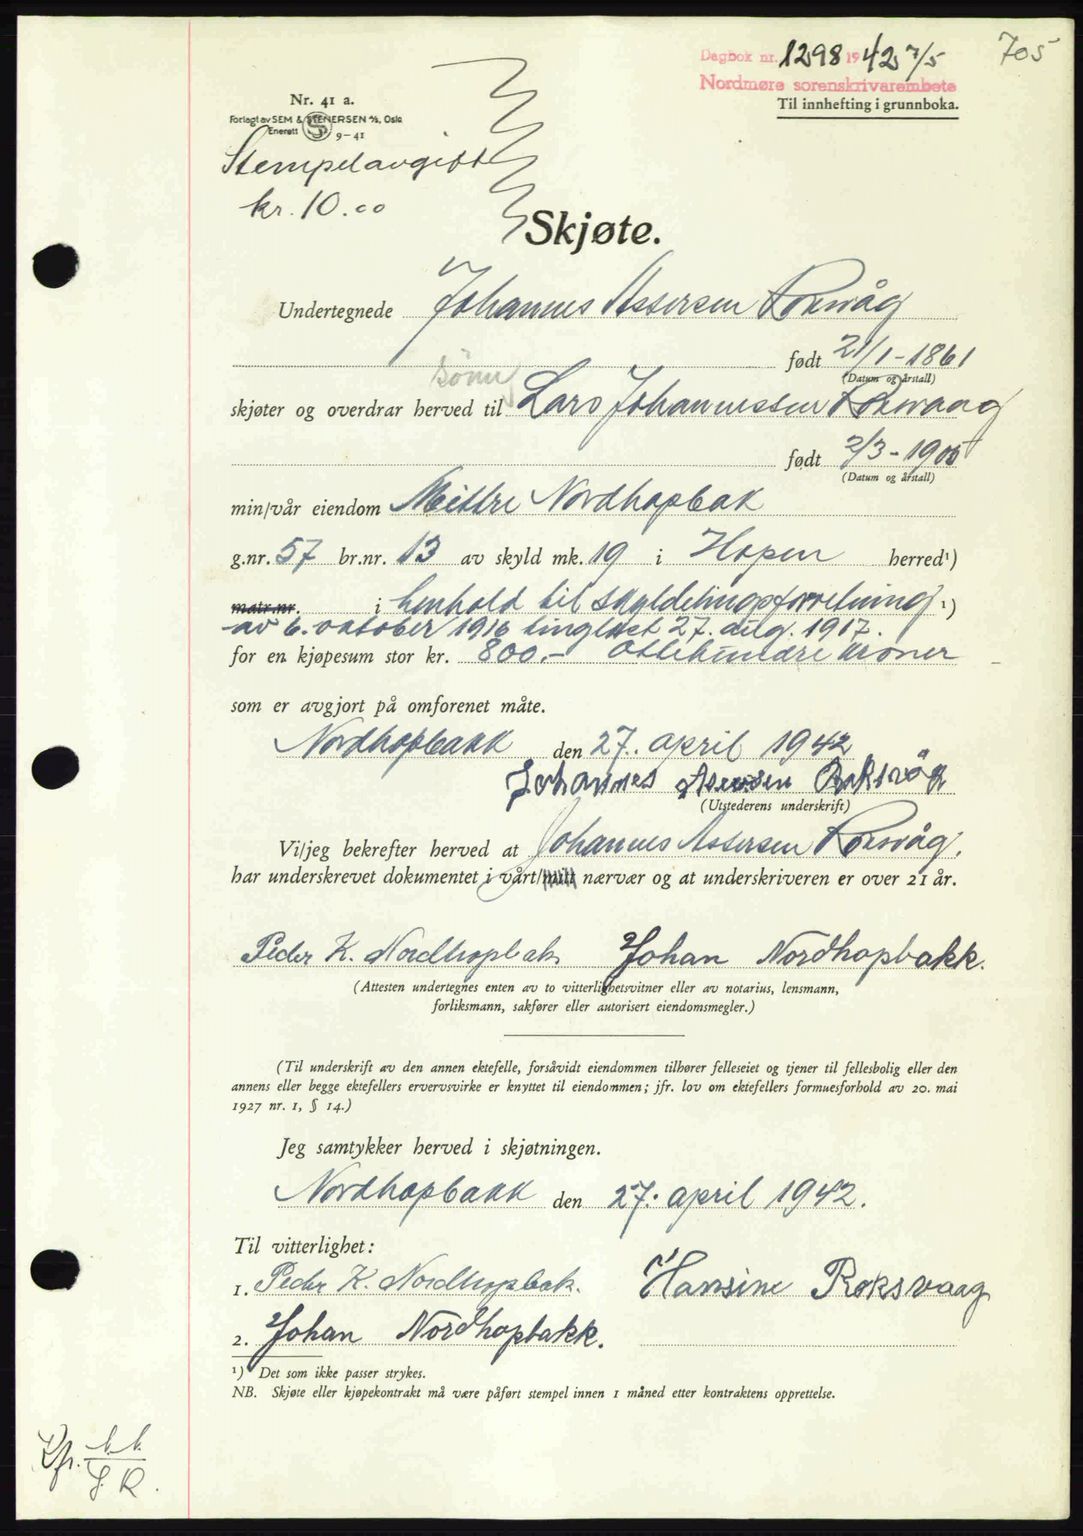 705
Dagbok nr. 1298 1942 7/5
Nordmøre sorenskrivarembete
Til innhefting i grunnboka.
Nr. 41 a.
Forlagt av SEM & STENERSEN A/S, Oslo
Enerett 9-41
Stempelavgift
kr. 10.00
Skjøte.
Undertegnede Johannes Assersen Roksvåg
født 21/1-1861
(Datum og årstall)
sønn
skjøter og overdrar herved til Lars Johannessen Roksvaag
født 2/3-1905
(Datum og årstall)
min/vår eiendom Mittre Nordhopbak
g.nr. 57 br.nr. 13 av skyld mk. 19 i Hopen herred¹)
matr.nr. i henhold til skyldelingsforretning ¹)
av 6. oktober 1916 tinglæst 27. aug. 1917.
for en kjøpesum stor kr. 800.- Ottehundre kroner
som er avgjort på omforenet måte.
Nordhopbakk den 27. april 1942
Johannes Assersen Roksvåg
(Utstederens underskrift)
Vi/jeg bekrefter herved at Johannes Assersen Roksvåg,
har underskrevet dokumentet i vårt/mitt nærvær og at underskriveren er over 21 år.
Peder K. Nordhopbak Johan Nordhopbakk.
(Attesten undertegnes enten av to vitterlighetsvitner eller av notarius, lensmann,
forliksmann, sakfører eller autorisert eiendomsmegler.)
(Til underskrift av den annen ektefelle, forsåvidt eiendommen tilhører felleseiet og tjener til fellesbolig eller den
annens eller begge ektefellers ervervsvirke er knyttet til eiendommen; jfr. lov om ektefellers formuesforhold av 20. mai
1927 nr. 1, § 14.)
Jeg samtykker herved i skjøtningen.
Nordhopbakk den 27. april 1942.
Til vitterlighet:
1. Peder K. Nordhopbak. Hansine Roksvaag
2. Johan Nordhopbakk.
¹) Det som ikke passer strykes.
NB. Skjøte eller kjøpekontrakt må være påført stempel innen 1 måned etter kontraktens opprettelse.